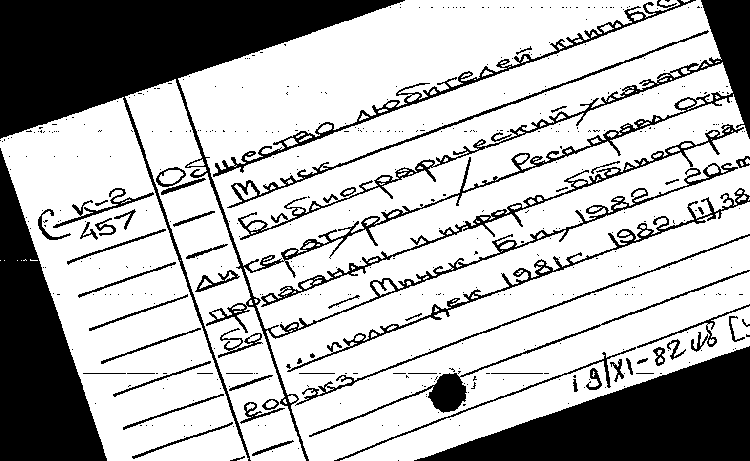 С к-2
457
Общество любителей книги БССР
Минск.
Библиографический указатель
литературы... / ... Респ. правл. Отд.
пропаганды и информ.-библиогр ра-
боты. — Минск: Б.и., 1982. - 20 см
... июль - дек 1981г. 1982. [1], 38
200 экз
19/XI-82 48